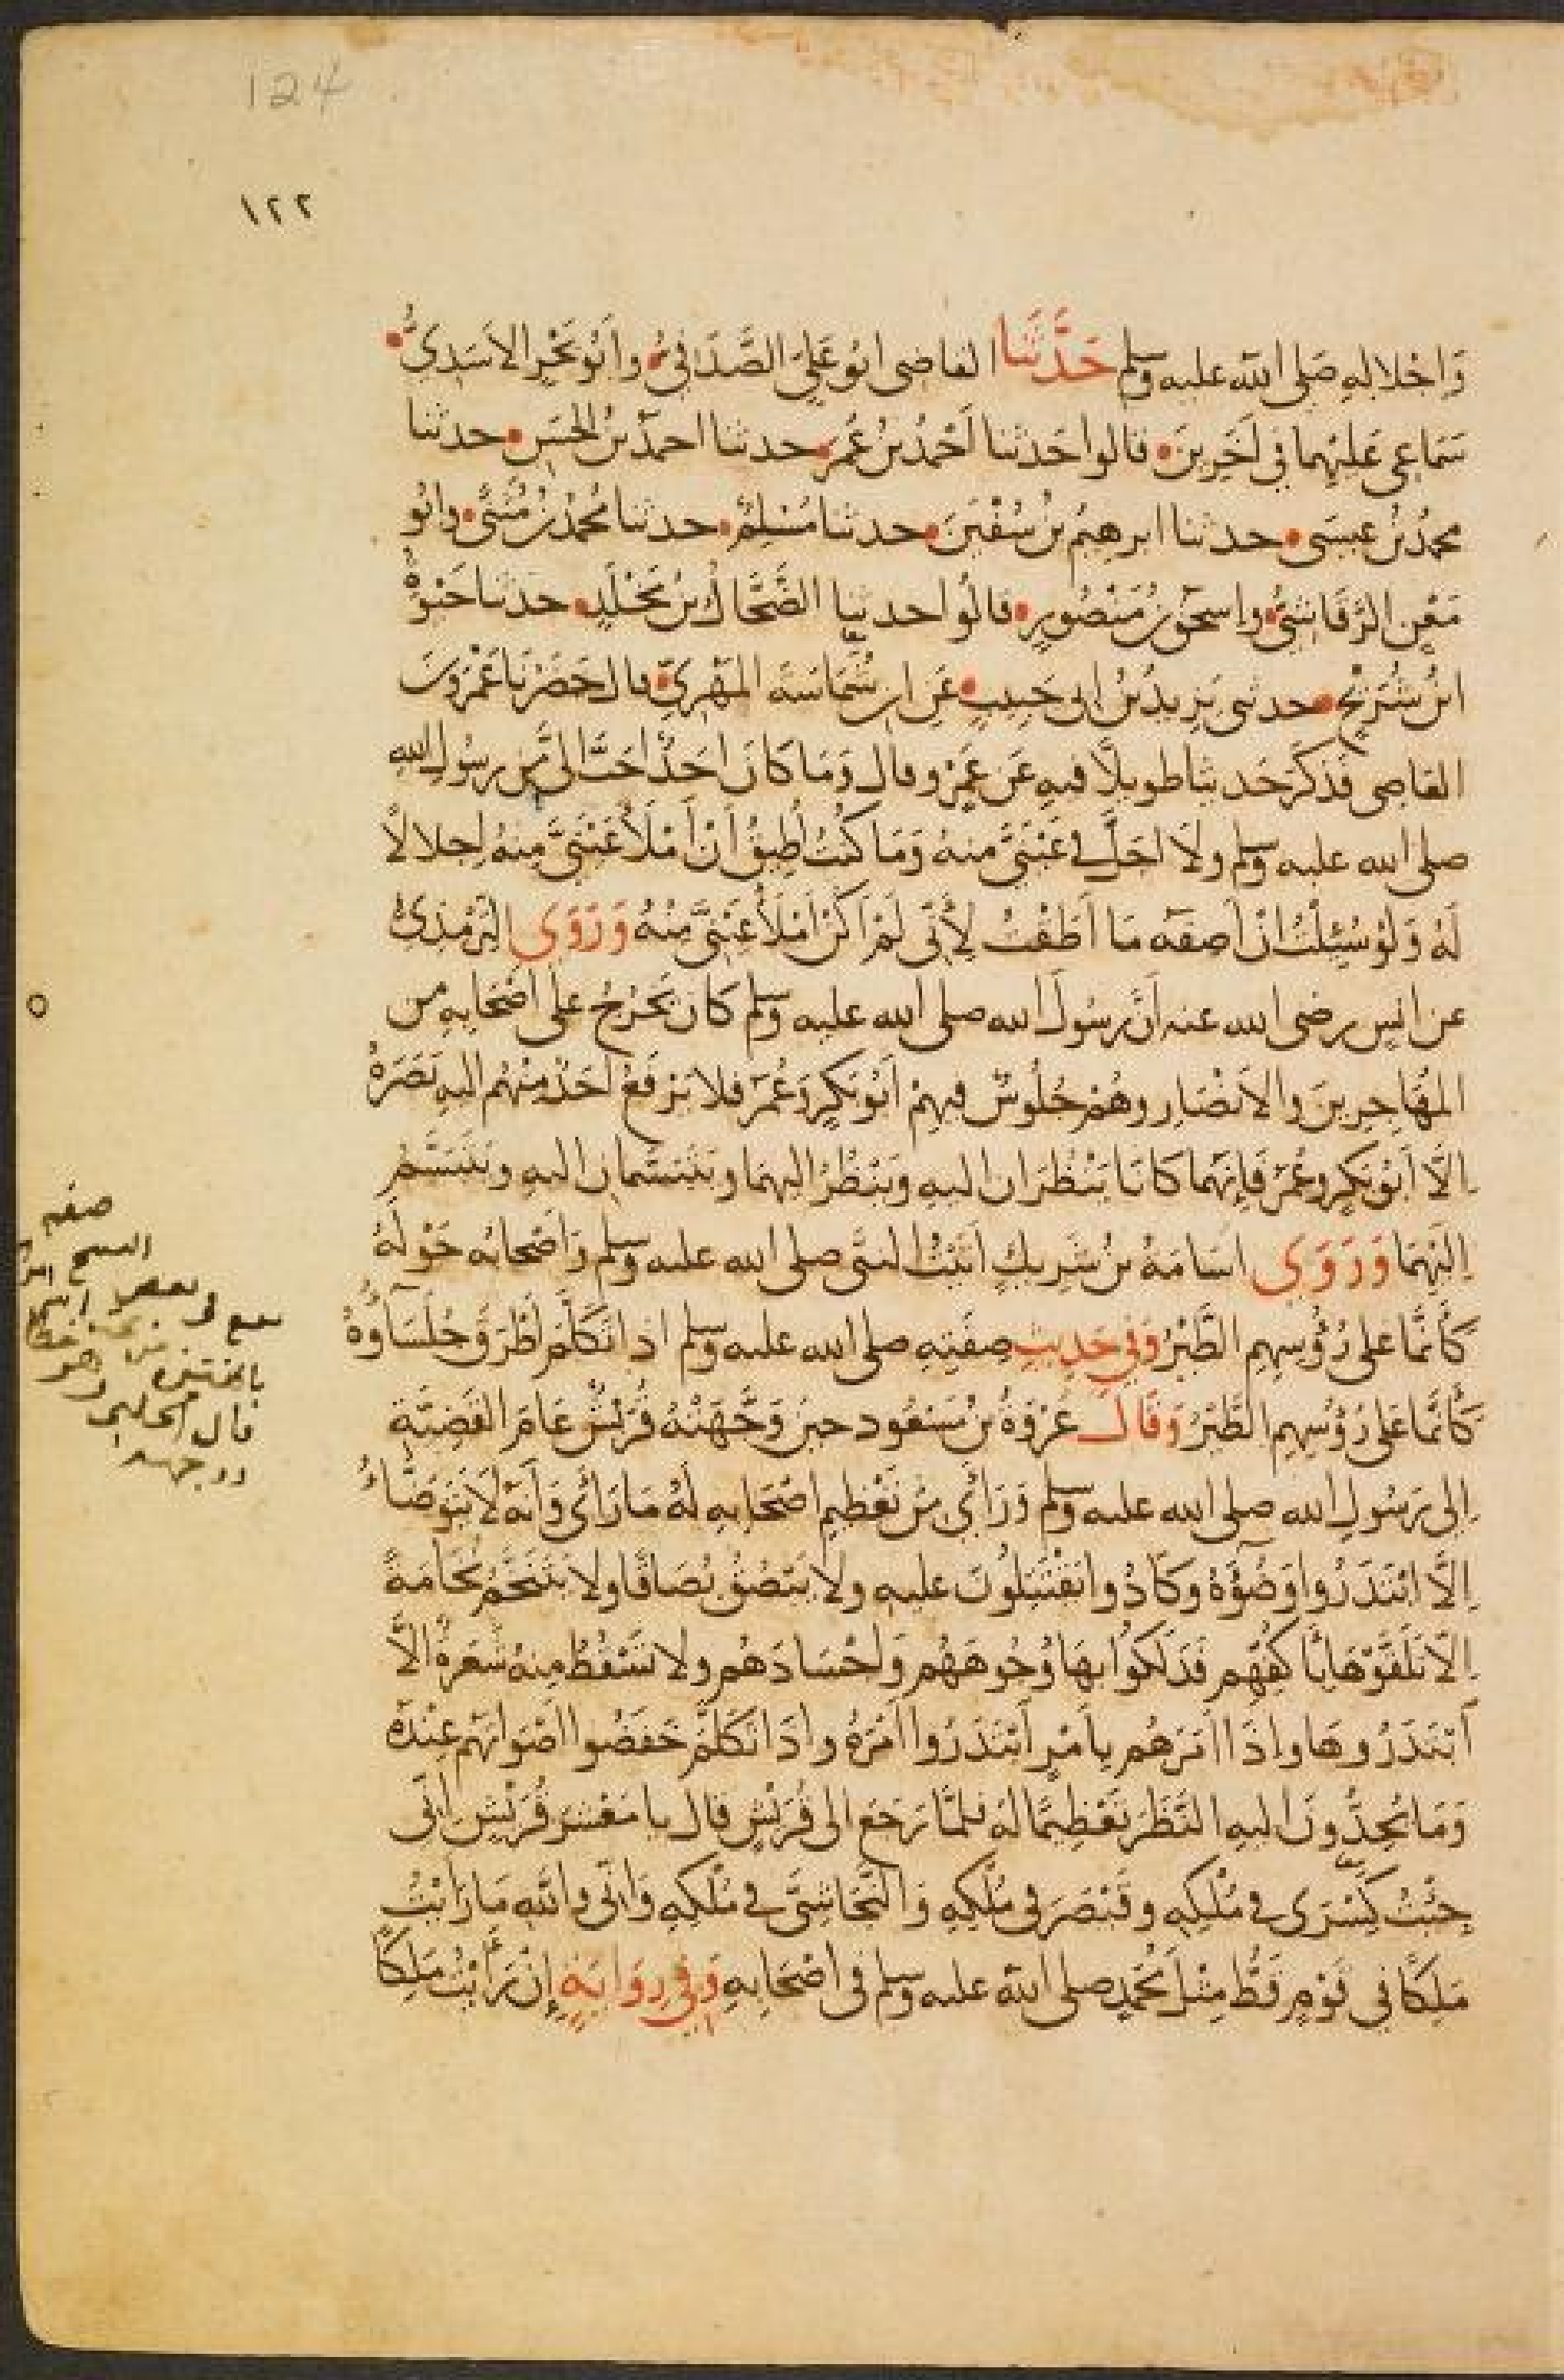 124
١٢٢
وَاجْلالِهِ صَلى الله عليه وسلم حَدَّثَنا القاضى ابُو عَلِىّ الصَّدَفِىُّ وابُو بَحْرٍ الاَسَدِىُّ
سَمَاعِى عَلَيْهِما فِى آخَرِينَ قالوا حَدثنا اَحْمَدُ بنُ عُمَرَ حدثنا احمدُ بنُ الحَسَنِ حدثنا
محمدُ بنُ عيسَى حدثنا ابرهيمُ بنُ سُفْيَنَ حدثنا مُسْلِمٌ حدثنا مُحمدُ بنُ مُثَنَّى وابُو
مَعْنٍ الرَّقَاشِىُّ واسحقُ بنُ مَنْصُورٍ قالُوا حدثنا الضَّحَّاكُ بنُ مَخْلَدٍ حدثنا حَيْوَةُ
ابنُ شُرَيْحٍ حدثنى يَزِيدُ بنُ ابى حَبِيبٍ عَنِ ابن شُمَاسَة المَهْرِىّ قال حَضَرْنَا عَمْرَو بنَ
العَاصِى فَذَكَرَ حَديثا طويلًا فيهِ عَنْ عَمْرٍو قال وَمَا كَانَ احَدٌ احَبَّ الىَّ مِن رسُولِ اللهِ
صلى الله عليه وسلم ولَا اجَلَّ فى عَيْنَىَّ منهُ وَمَا كُنتُ اُطِيقُ اَنْ اَمْلَأَ عَيْنَىَّ مِنهُ اِجلالاً
لَهُ وَلَوْ سُئِلْتُ انْ اَصِفَهُ مَا اَطَقْتُ لِأَنِّى لَمْ اَكُنْ اَمْلَأُ عَيْنَىَّ مِنْهُ وَرَوَى التِّرْمِذِىُّ
عن انسٍ رضى الله عنه اَنَّ رسُولَ الله صلى الله عليه وسلم كَانَ يَخْرُجُ على اَصْحَابِهِ من
المُهَاجِرِينَ والاَنْصَارِ وهُمْ جُلُوسٌ فيهِمْ اَبُو بَكْرٍ وَعُمَرُ فلا يَرْفَعُ اَحَدٌ مِنْهُم اليهِ بَصَرَهُ
اِلَّا اَبُو بَكْرٍ وعُمَرُ فَاِنَّهُمَا كَانَا يَنْظُرَانِ اليهِ وَيَنْظُرُ اليهِمَا ويَتَبَسَّمَانِ اليهِ ويَتَبَسَّمُ
اِلَيْهِمَا وَرَوَى اُسَامَةُ بنُ شَرِيكٍ اَتَيْتُ النبىَّ صلى الله عليه وسلم وَاَصْحابُه حَوْلَهُ
كَأَنَّمَا على رُؤُسِهِم الطَّيْرُ وَفِى حَدِيثِ صِفَتِهِ صلى الله عليه وسلم اذا تَكَلَّمَ اَطْرَقَ جُلَسَاؤُهُ
كَأَنَّمَا عَلَى رُؤُسِهِم الطَّيْرُ وَقَالَ عُرْوَةُ بنُ مَسْعُود حينَ وَجَّهَتْهُ قُرَيْشٌ عَامَ القَضِيَّةِ
اِلى رَسُولِ الله صلى الله عليه وسلم وَرَأَى مِنْ تَعْظِيمِ اَصْحَابِهِ لَهُ مَا رَأَى وَاَنَّهُ لَا يَتَوَضَّأُ
اِلَّا ابْتَدَرُوا وَضُوْءَهُ وكَادُوا يَقْتَتِلُونَ عليهِ ولا يَبْصُقُ بُصَاقًا ولا يَتَنَخَّمُ نُخَامَةً
اِلَّا تَلَقَّوْهَا بِأَكُفِّهِم فَدَلَكُوا بِهَا وُجُوهَهُم وَاَجْسَادَهُم ولا تَسْقُطُ مِنهُ شَعَرَةٌ اِلَّا
اَبْتَدَرُوهَا واِذَا اَمَرَهُم بِاَمْرٍ اَبْتَدَرُوا اَمْرَهُ واذَا تَكَلَّمَ خَفَضُوا اَصْوَاتَهُمْ عِنْدَهُ
وَمَا يُحِدُّونَ اليهِ النَّظَرَ تَعْظِيمًا لَهُ فلمَّا رَجَعَ الى قُرَيْشٍ قال يا مَعْشَرَ قُرَيْشٍ اِنِّى
جِئْتُ كِسْرَى فى مُلْكِهِ وقَيْصَرَ فى مُلْكِهِ وَالنَّجَاشِىَّ فى مُلْكِهِ وَاِنِّى وَاللهِ مَا رَاَيْتُ
مَلِكًا فِى قَوْمٍ قَطُّ مِثْلَ مُحَمَّدٍ صلى الله عليه وسلم فى اَصْحَابِهِ وَفِى رِوَايَةٍ اِنْ رَاَيْتُ مَلِكًا
صفه
قال الحلبى